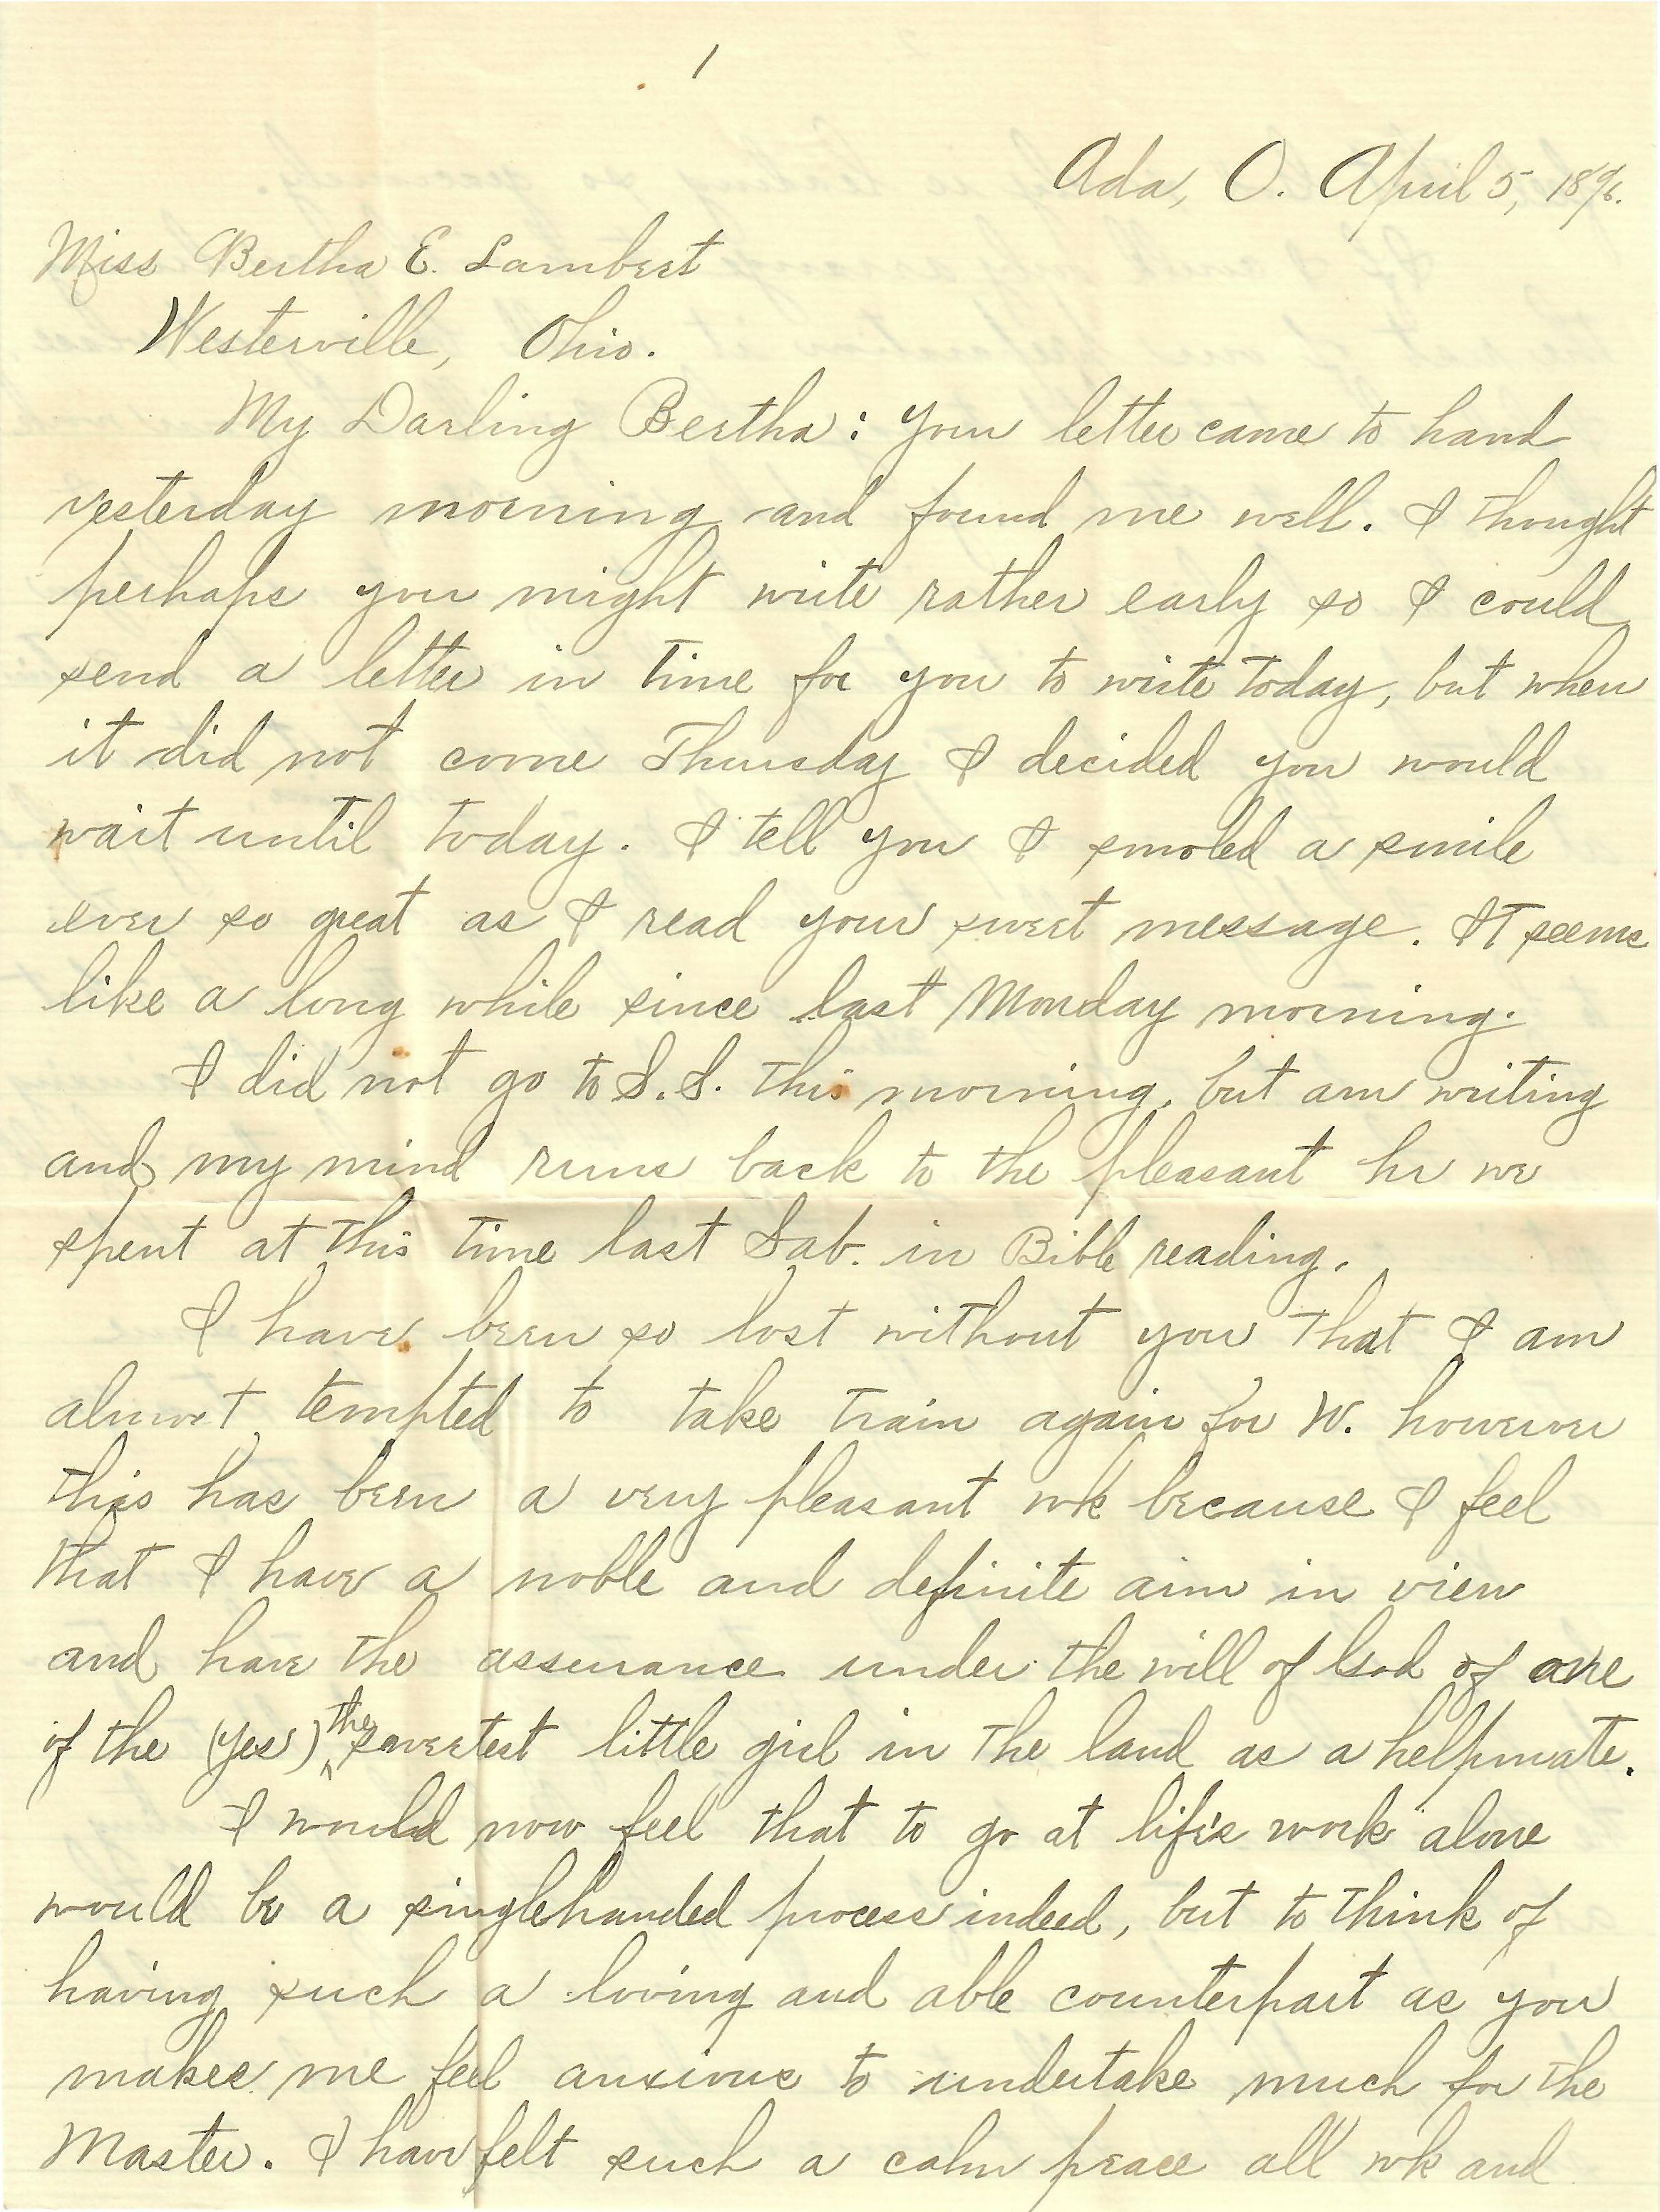 1
Ada, O. April 5, 1896.
Miss Bertha E. Lambert
Westerville, Ohio.
My Darling Bertha: Your letter came to hand
yesterday morning and found me well. I thought
perhaps you might write rather early so I could
send a letter in time for you to write today, but when
it did not come Thursday I decided you would
wait until today. I tell you I smoled a smile
ever so great as I read your sweet message. It seems
like a long while since last Monday morning.
I did not go to S.S. this morning, but am writing
and my mind runs back to the pleasant hr we
spent at this time last Sab. in Bible reading.
I have been so lost without you that I am
almost tempted to take train again for W. however
this has been a very pleasant wk because I feel
that I have a noble and definite aim in view
and have the assurance under the will of God of one
of the (yes) the sweetest little girl in the land as a helpmate.
I would now feel that to go at life's work alone
would be a singlehanded process indeed, but to think of
having such a loving and able counterpart as you
makes me feel anxious to undertake much for the
Master. I have felt such a calm peace all wk and